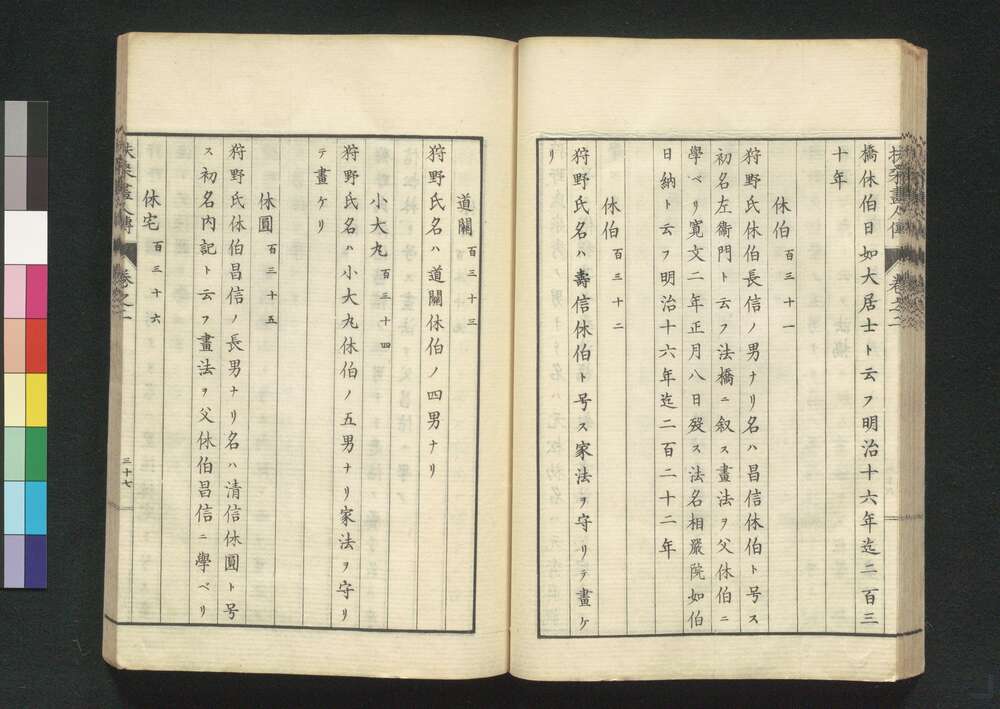 橋休伯日如大居士ト云フ明治十六年迄二百三
十年
休伯 百三十一
狩野氏休伯長信ノ男ナリ名ハ昌信休伯ト号ス
初名左衞門ト云フ法橋ニ叙ス畫法ヲ父休伯ニ
學ベリ寛文二年正月八日歿ス法名相嚴院如伯
日納ト云フ明治十六年迄二百二十二年
休伯 百三十二
狩野氏名ハ壽信休伯ト号ス家法ヲ守リテ畫ケ
リ
道關 百三十三
狩野氏名ハ道關休伯ノ四男ナリ
小大丸 百三十四
狩野氏名ハ小大丸休伯ノ五男ナリ家法ヲ守リ
テ畫ケリ
休圓 百三十五
狩野氏休伯昌信ノ長男ナリ名ハ清信休圓ト号
ス初名内記ト云フ畫法ヲ父休伯昌信ニ學ベリ
休宅 百三十六
扶桑畫人傳 卷之一 三十七